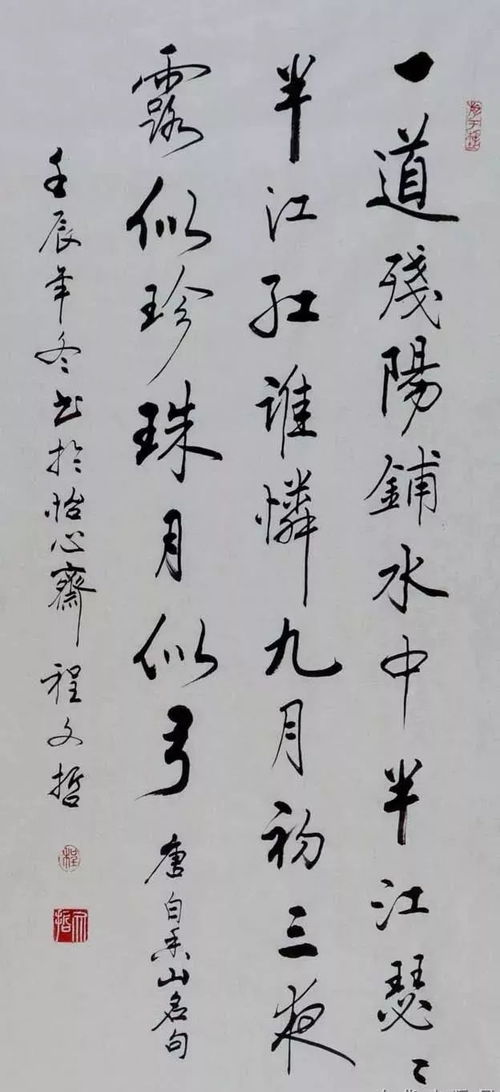 一道殘陽鋪水中半江瑟〻
半江红誰憐九月初三夜
露似珍珠月似弓 唐白香山名句
壬辰年冬书於怡心齋 程文哲
程
文哲